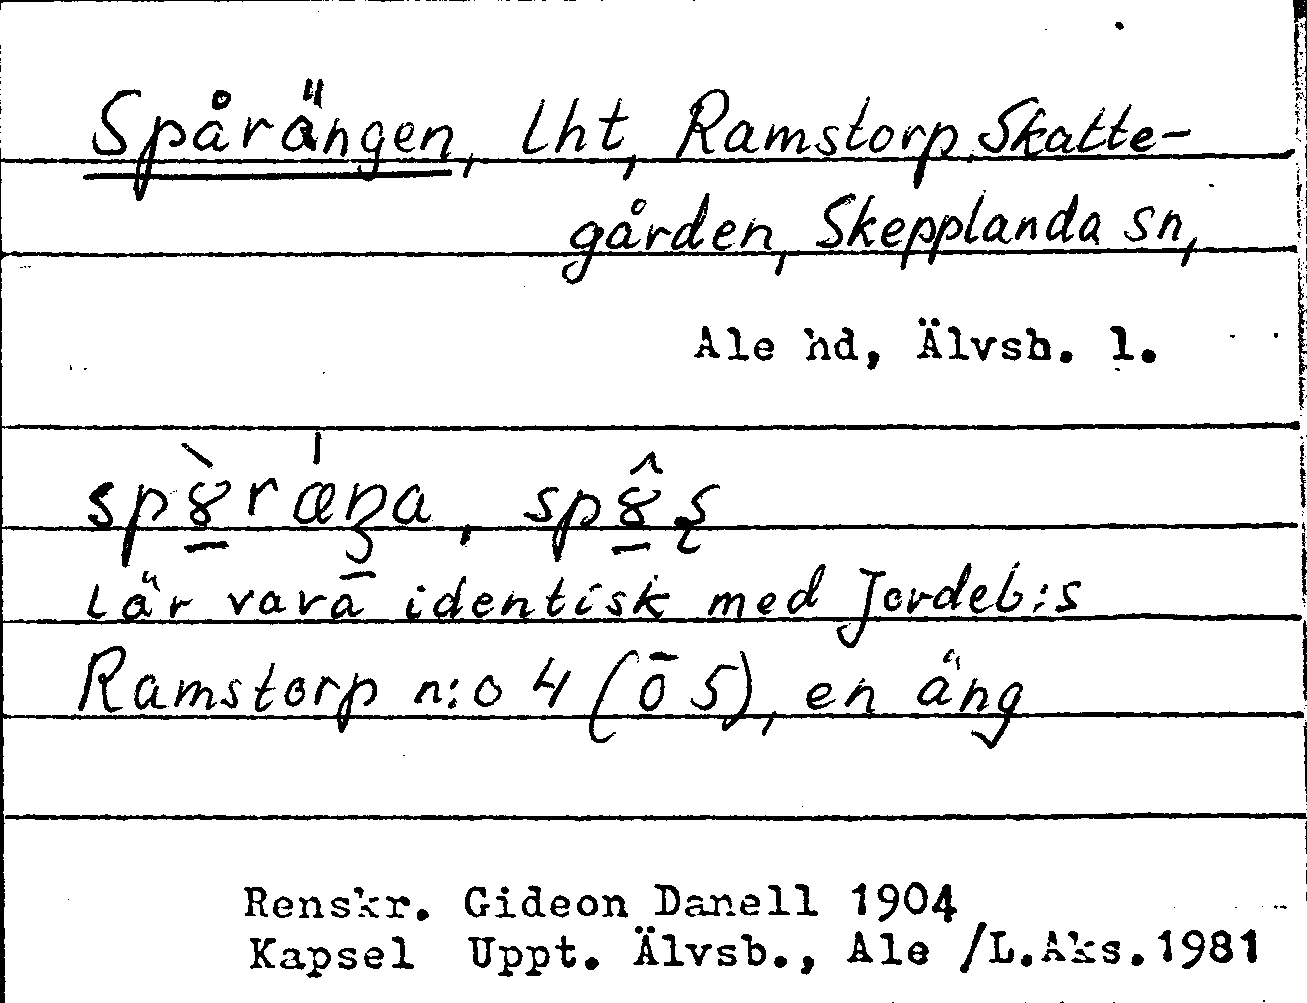 Spårängen, lht, Ramstorp Skatte-
gården, Skepplanda sn,
Ale hd, Älvsb. l.
spȣ̀rǽŋa, spȣ̂ʂ
Lär vara identisk med Jordeb:s
Ramstorp n:o 4 (ō 5), en äng
Renskr. Gideon Danell 1904
Kapsel Uppt. Älvsb., Ale /L.Aks.1981